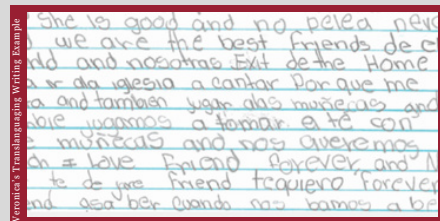 Veronica's Translanguaging Writing Example
She is good and no pelea nev
we are the best friends de
and nosotras Exit de the Home
iglesia a cantar Por que me
a and tambien jugar alas muñecas and
jugamos a tomar e té con
muñecas and nos queremos
I Love Friend forever and
te de friend tequiero forever
and asa ber cuando nos bamos a be